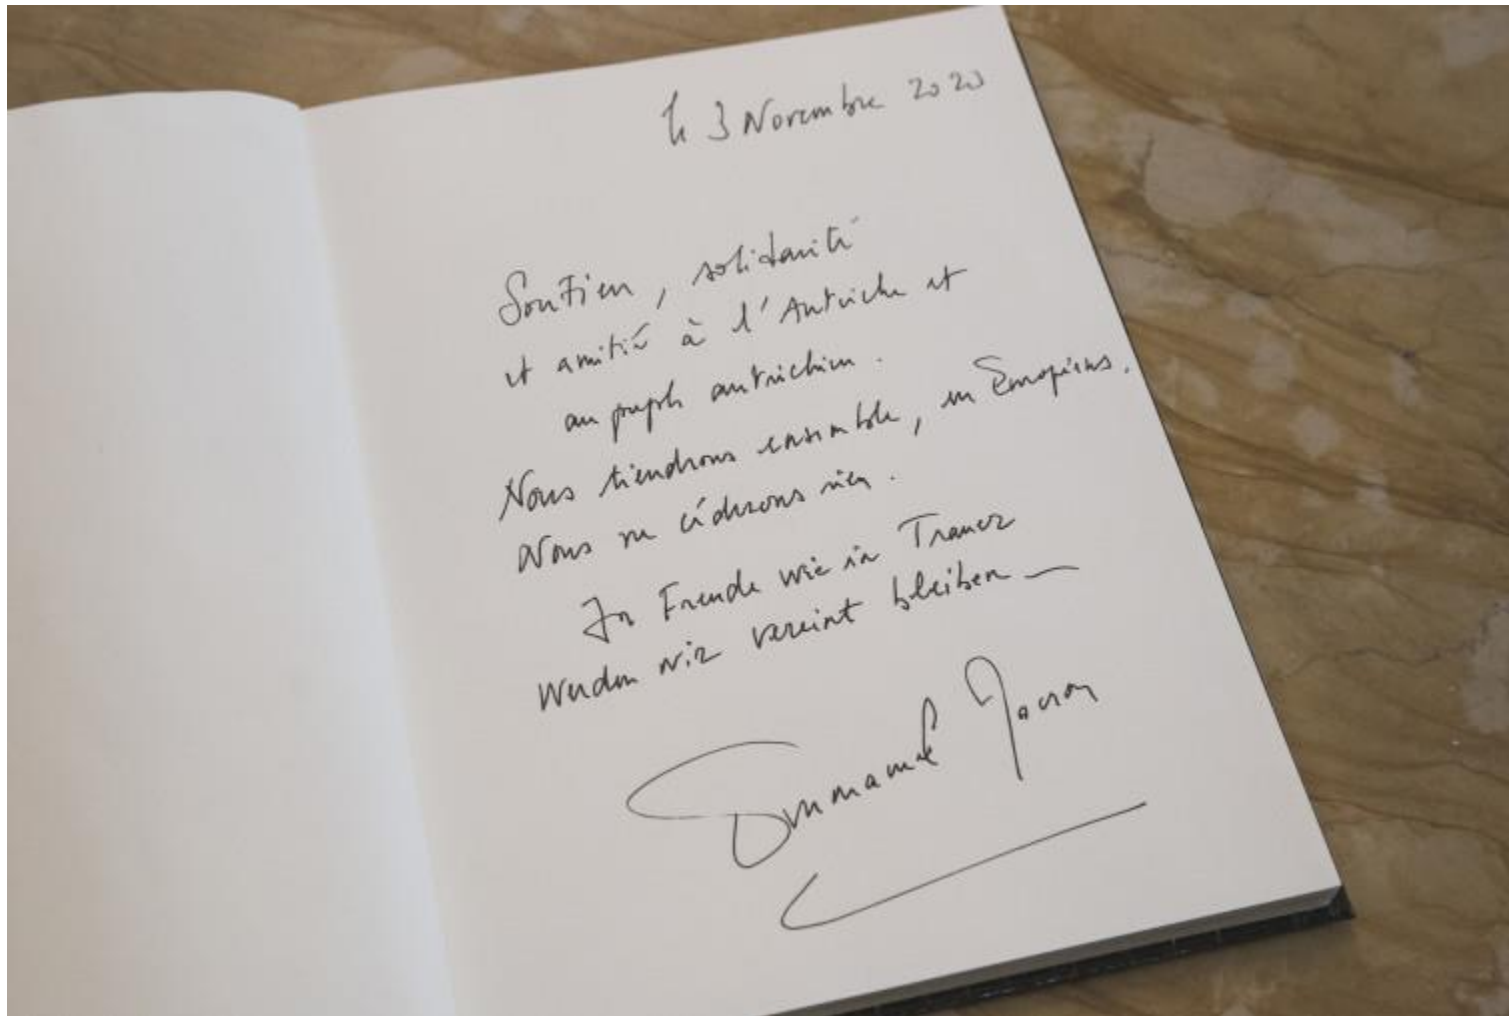 le 3 Novembre 2020
Soutien, solidarité
et amitié à l'Autriche et
au peuple autrichien.
Nous tiendrons ensemble, en Européens.
Nous ne céderons rien.
In Freude wie in Trauer
werden wir vereint bleiben –
Emmanuel Macron